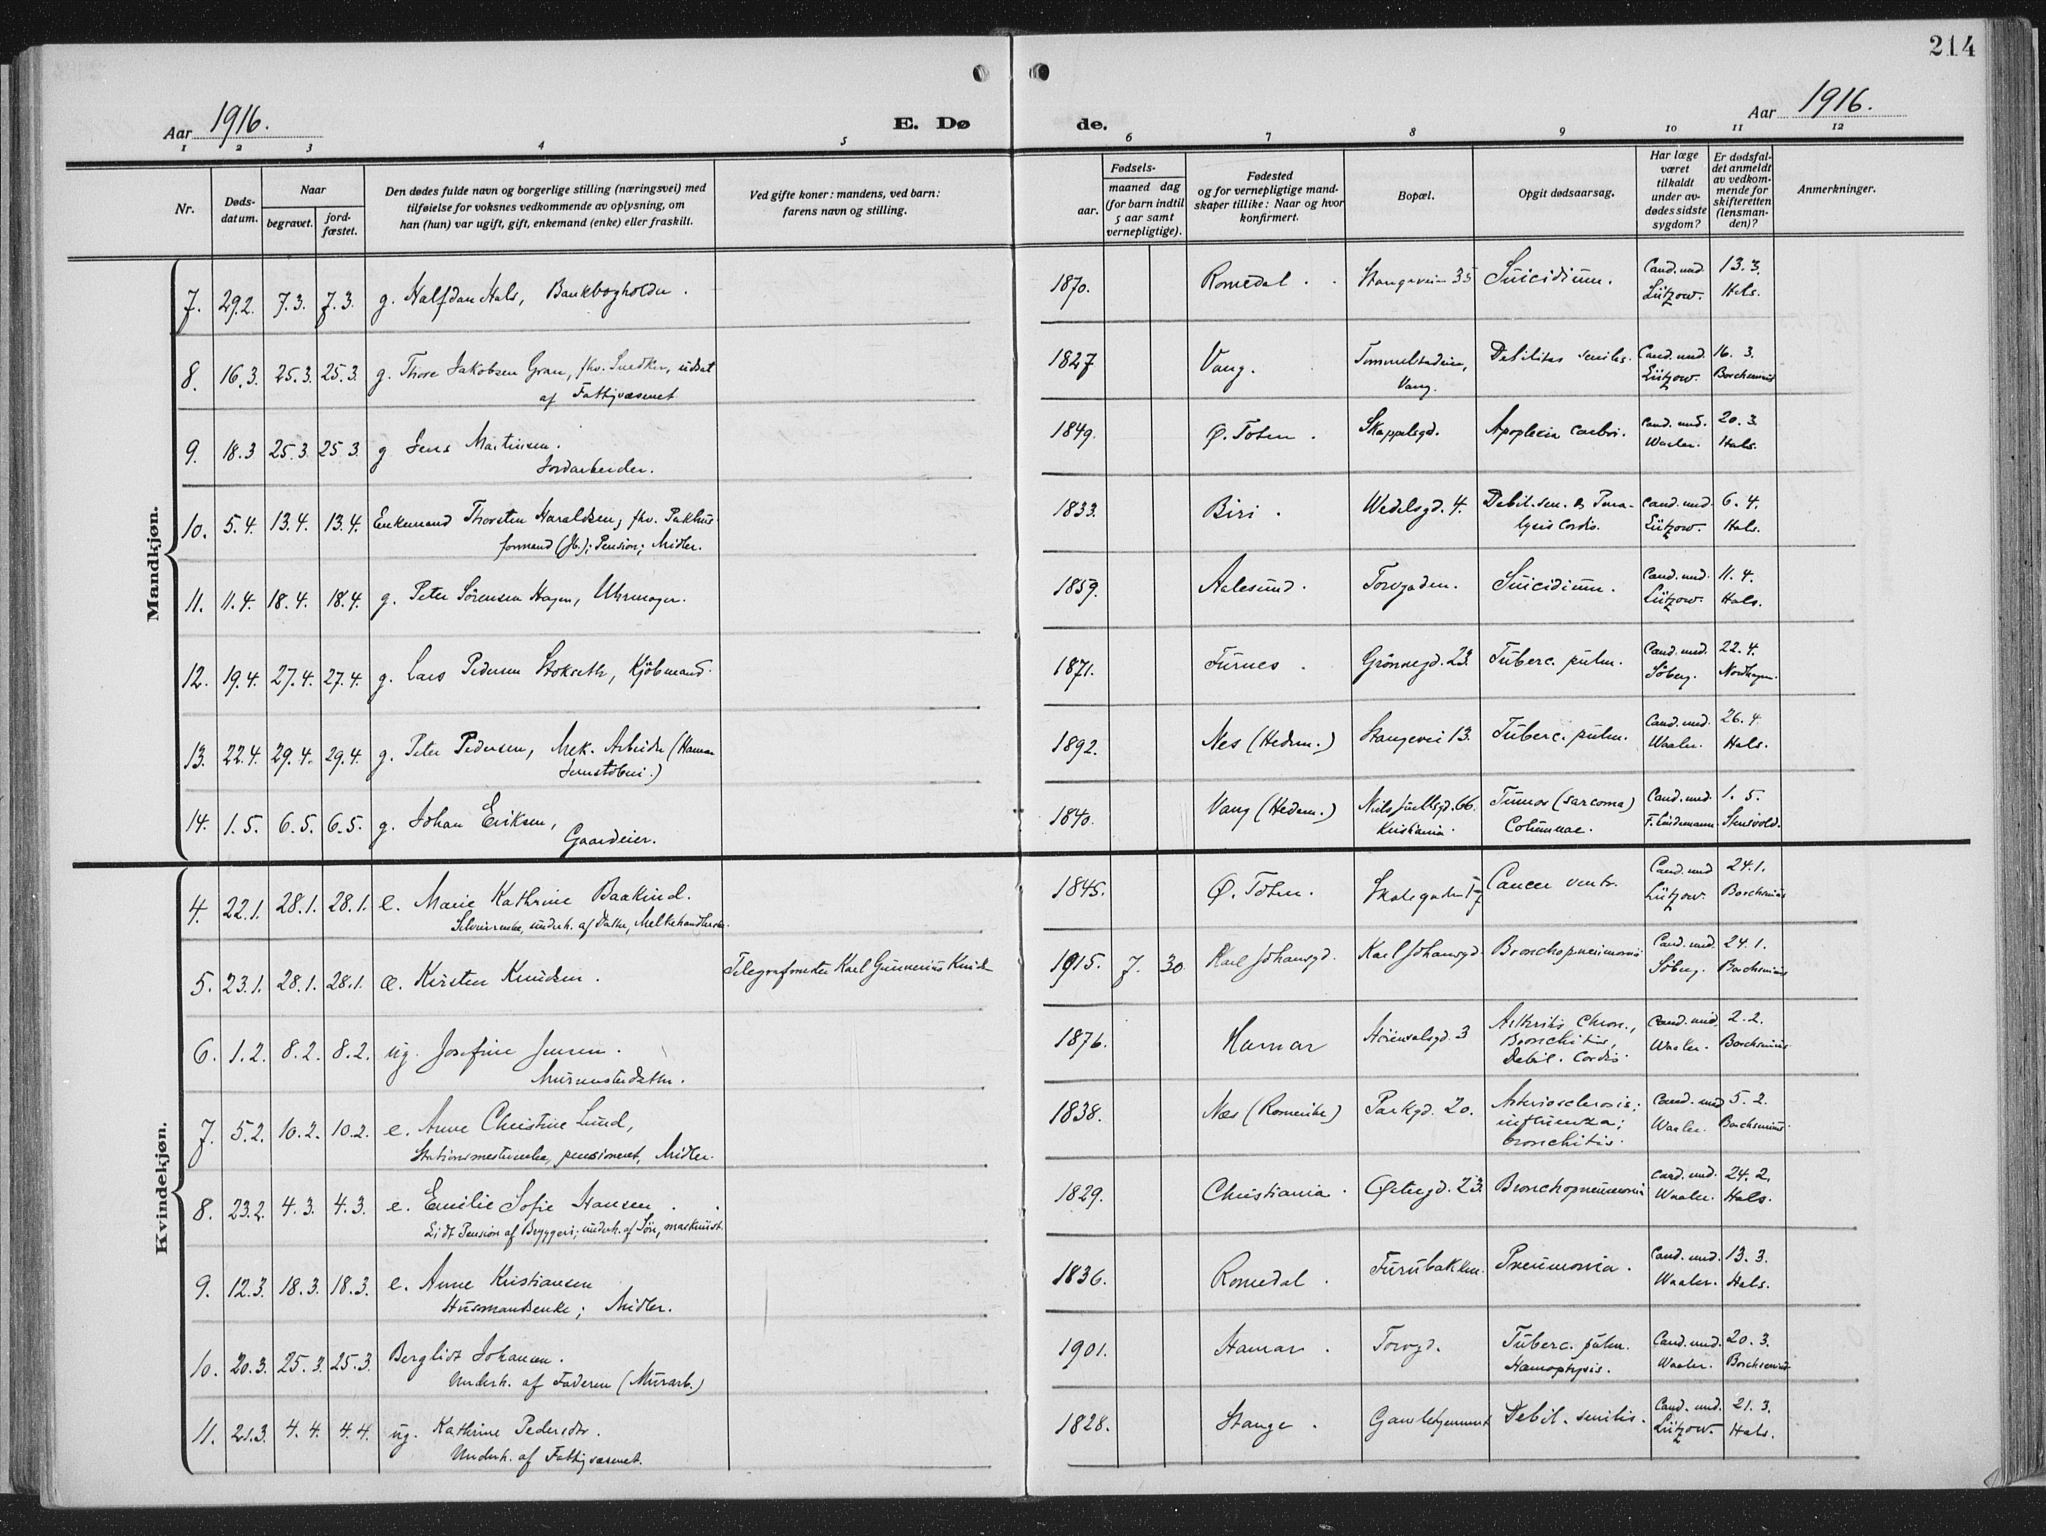 214
Aar 1916.
E. Dø de.
Aar 1916.
1 2 3 4 5 6 7 8 9 10 11 12
Nr.
Døds-
datum.
Naar
begravet.
jord-
fæstet.
Den dødes fulde navn og borgerlige stilling (næringsvei) med
tilføielse for voksnes vedkommende av oplysning, om
han (hun) var ugift, gift, enkemand (enke) eller fraskilt.
Ved gifte koner: mandens, ved barn:
farens navn og stilling.
Fødsels-
aar.
maaned dag
(for barn indtil
5 aar samt
vernepligtige).
Fødested
og for vernepligtige mand-
skaper tillike: Naar og hvor
konfirmert.
Bopæl.
Opgit dødsaarsag.
Har læge
været
tilkaldt
under av-
dødes sidste
sygdom?
Er dødsfal-
det anmeldt
av vedkom-
mende for
skifteretten
(lensman-
den)?
Anmerkninger.
Mandkjøn.
7. 29.2. 7.3. 7.3. g. Halfdan Hals, Bankbogholder. 1870. Romedal. Stangeveien 35 Suicidium. Cand. med. 13.3.
Lützow. Hals.
8. 16.3. 25.3. 25.3. g. Thore Jakobsen Gran, fhv. Snedker, udsat 1827 Vang. Debilitas senilis. Cand. med. 16.3.
af Fattigvæsenet Vang. Lützow. Borchsenius
9. 18.3 25.3. 25.3. g Jens Martinsen. 1849. Ø. Toten. Skappelsgd. Apoplexia cerebri. Cand. med. 20.3.
Jordarbeider. Waaler. Hals.
10. 5.4. 13.4. 13.4. Enkemand Thorsten Haraldsen, fhv. Pakhus- 1833. Biri. Wedelsgd. 4. Debil. sen. & Para- Cand. med. 6.4.
formand (Jb.); Pension; Midler. lysis Cordis. Lützow. Hals.
11. 11.4. 18.4. 18.4. g. Peter Sörensen Hagen, Uhrmager. 1859. Aalesund. Torvgaden. Suicidium. Cand. med. 11.4.
Lützow. Hals.
12. 19.4. 27.4. 27.4. g. Lars Pedersen Stokseth, Kjöbmand. 1871. Furnes. Grönnegd. 23. Tuberc. pulm. Cand. med. 22.4.
Söberg. Nordhagen.
13. 22.4. 29.4. 29.4. g. Peter Pedersen, Mek. Arbeider (Hamar 1892. Nes (Hedem.) Stangevei 13. Tuberc. pulm. Cand. med. 26.4.
Jernstöberi.) Waaler. Hals.
14. 1.5. 6.5. 6.5. g. Johan Eriksen, 1840. Vang (Hedem.) Niels Juelsgd. 66. Tumor (sarcoma) Cand. med. 1.5.
Gaardeier. Kristiania. Columnae. F. Lindemann. Stensvold.
Kvindekjøn.
4. 22.1. 28.1. 28.1. e. Marie Kathrine Baakind. 1845. Ø. Toten. Skolegaden Cancer ventr. Cand. med 24.1.
underh. af Datter, Lützow. Borchsenius
5. 23.1. 28.1. 28.1. æ. Kirsten Knudsen. Telegrafmester Karl Gunnerius Knudsen 1915. 7. 30 Karl Johansgd. Karl Johansgd. Bronchopneumoni Cand. med. 24.1.
Söberg. Borchsenius
6. 1.2. 8.2. 8.2. ug. Josefine Jensen. 1876. Hamar 3 Arthritis chron., Cand. med. 2.2.
Murmesterdatter. Bronchitis, Waaler. Borchsenius
Debil. Cordis.
7. 5.2. 10.2. 10.2. e. Anne Christine Lund, 1838. Næs (Romerike) Parkgd. 20. Arteriosclerosis; Cand. med 5.2.
Stationsmesterenke, pensioneret, Midler. influenza; Waaler. Borchsenius
bronchitis.
8. 23.2. 4.3. 4.3. e. Emilie Sofie Hansen. 1829. Christiania. Østregd. 23. Bronchopneumonia Cand. med. 24.2.
Lidt Pension af Bryggeri; underh. af Sön, maskinist. Waaler. Hals.
9. 12.3. 18.3. 18.3. e. Anne Kristiansen 1836. Romedal. Furubakken. Pneumonia. Cand. med. 13.3.
Husmandsenke; Midler. Waaler. Hals.
10. 20.3. 25.3. 25.3. Bergliot Johansen. 1901. Hamar. Torvgd. Tuberc. pulm. Cand. med. 20.3.
Underh. af Faderen (Murarb.) Hæmoptysis. Waaler. Borchsenius
11. 21.3. 4.4. 4.4. ug. Kathrine Pedersdtr. 1828. Stange. Gamlehjemmet Debil. senilis. Cand. med. 21.3.
Underh. af Fattigvæsenet. Lützow. Hals.